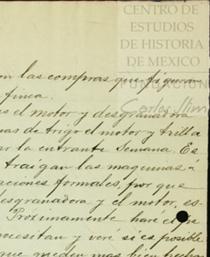 CENTRO DE
ESTUDIOS
DE HISTORIA
DE MEXICO
FUNDACIÓN
Carlos Slim
on las compras que figuran
finca.
es el motor y desgranadora
nas de trigo el motor y trilla
ar la entrante semana. Es
traigan las maquinas á
aciones formales, por que
desgranadora y el motor, es-
Proximamente haré el pe
necesitan y veré si es posible
que queden mas bien